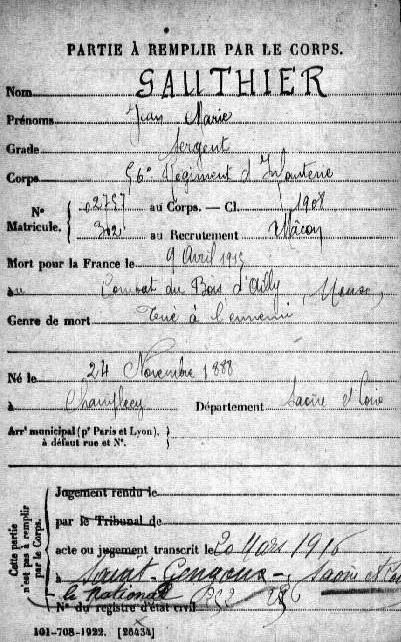 PARTIE À REMPLIR PAR LE CORPS.
Nom GAUTHIER
Prénoms Jean Marie
Grade Sergent
Corps 56e Régiment d'Infanterie
N° Matricule. { 02757 au Corps. — Cl. 1908
302 au Recrutement Mâcon
Mort pour la France le 9 Avril 1915
au Combat du Bois d'Ailly, Meuse
Genre de mort Tué à l'ennemi
Né le 24 Novembre 1888
à Champlecy Département Saône et Loire
Arrt municipal (pr Paris et Lyon), à défaut rue et N°. }
Cette partie n'est pas à remplir par le Corps.
Jugement rendu le
par le Tribunal de
acte ou jugement transcrit le 20 Mars 1916
à Saint-Gengoux - Saône et
le National
N° du registre d'état civil
101-708-1922. [26434]